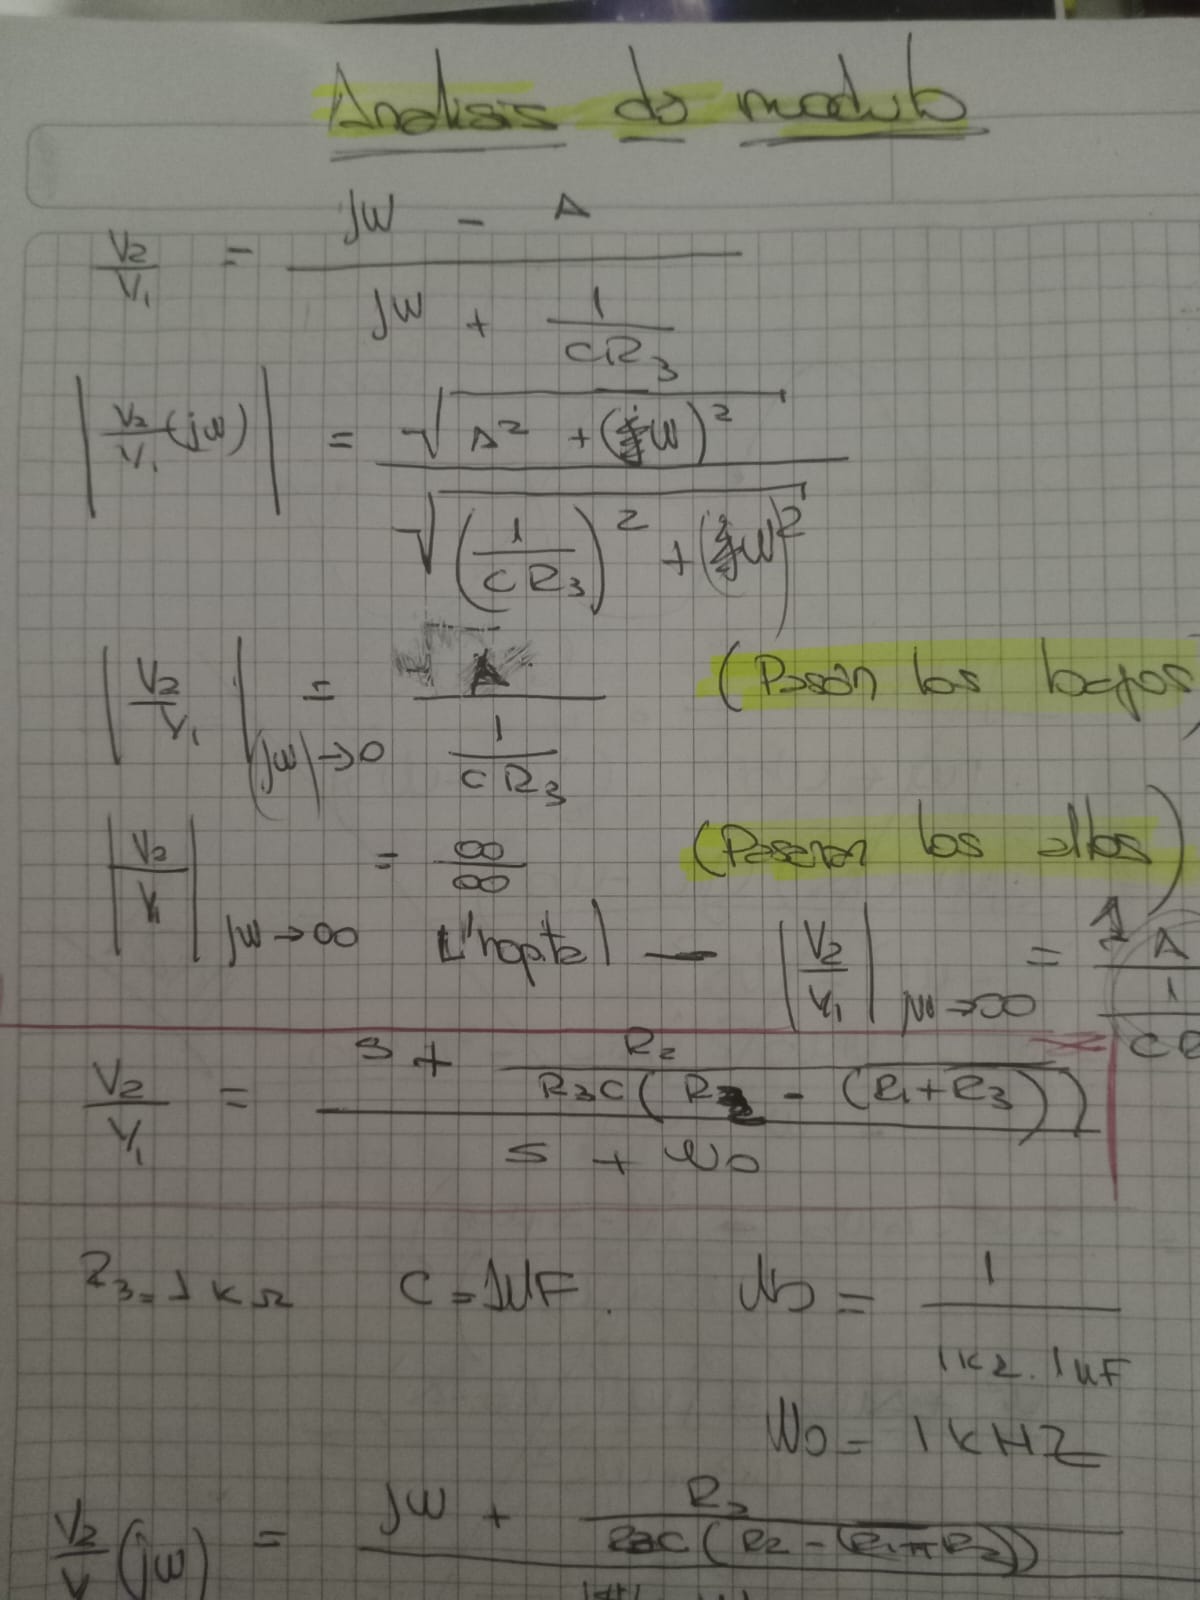 Analisis do modulo
V2/V1 = (jw - A) / (jw + 1/(CR3))
|V2/V1 (jw)| = √(A² + (w)²) / √((1/(CR3))² + (w)²)
|V2/V1| |jw|→0 = A / (1/(CR3)) (Pasan los bajos)
|V2/V1| jw→∞ = ∞/∞ (Pasaran los altos)
L'hopital — |V2/V1| jw→∞ =
V2/V1 = (s + R2/(R3C(R2 - (R1+R3)))) / (s + Wo)
R3 = 1kΩ C = 1uF. Wo = 1/(1kΩ . 1uF)
Wo = 1KHZ
V2/V1 (jw) = jw +